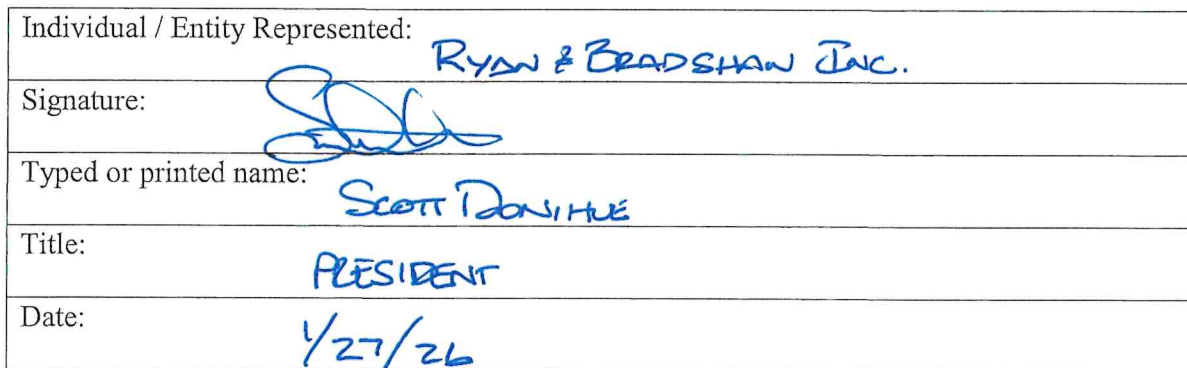 Individual / Entity Represented: RYAN & BRADSHAW INC.
Signature:
Typed or printed name: SCOTT DONIHUE
Title: PRESIDENT
Date: 1/27/26